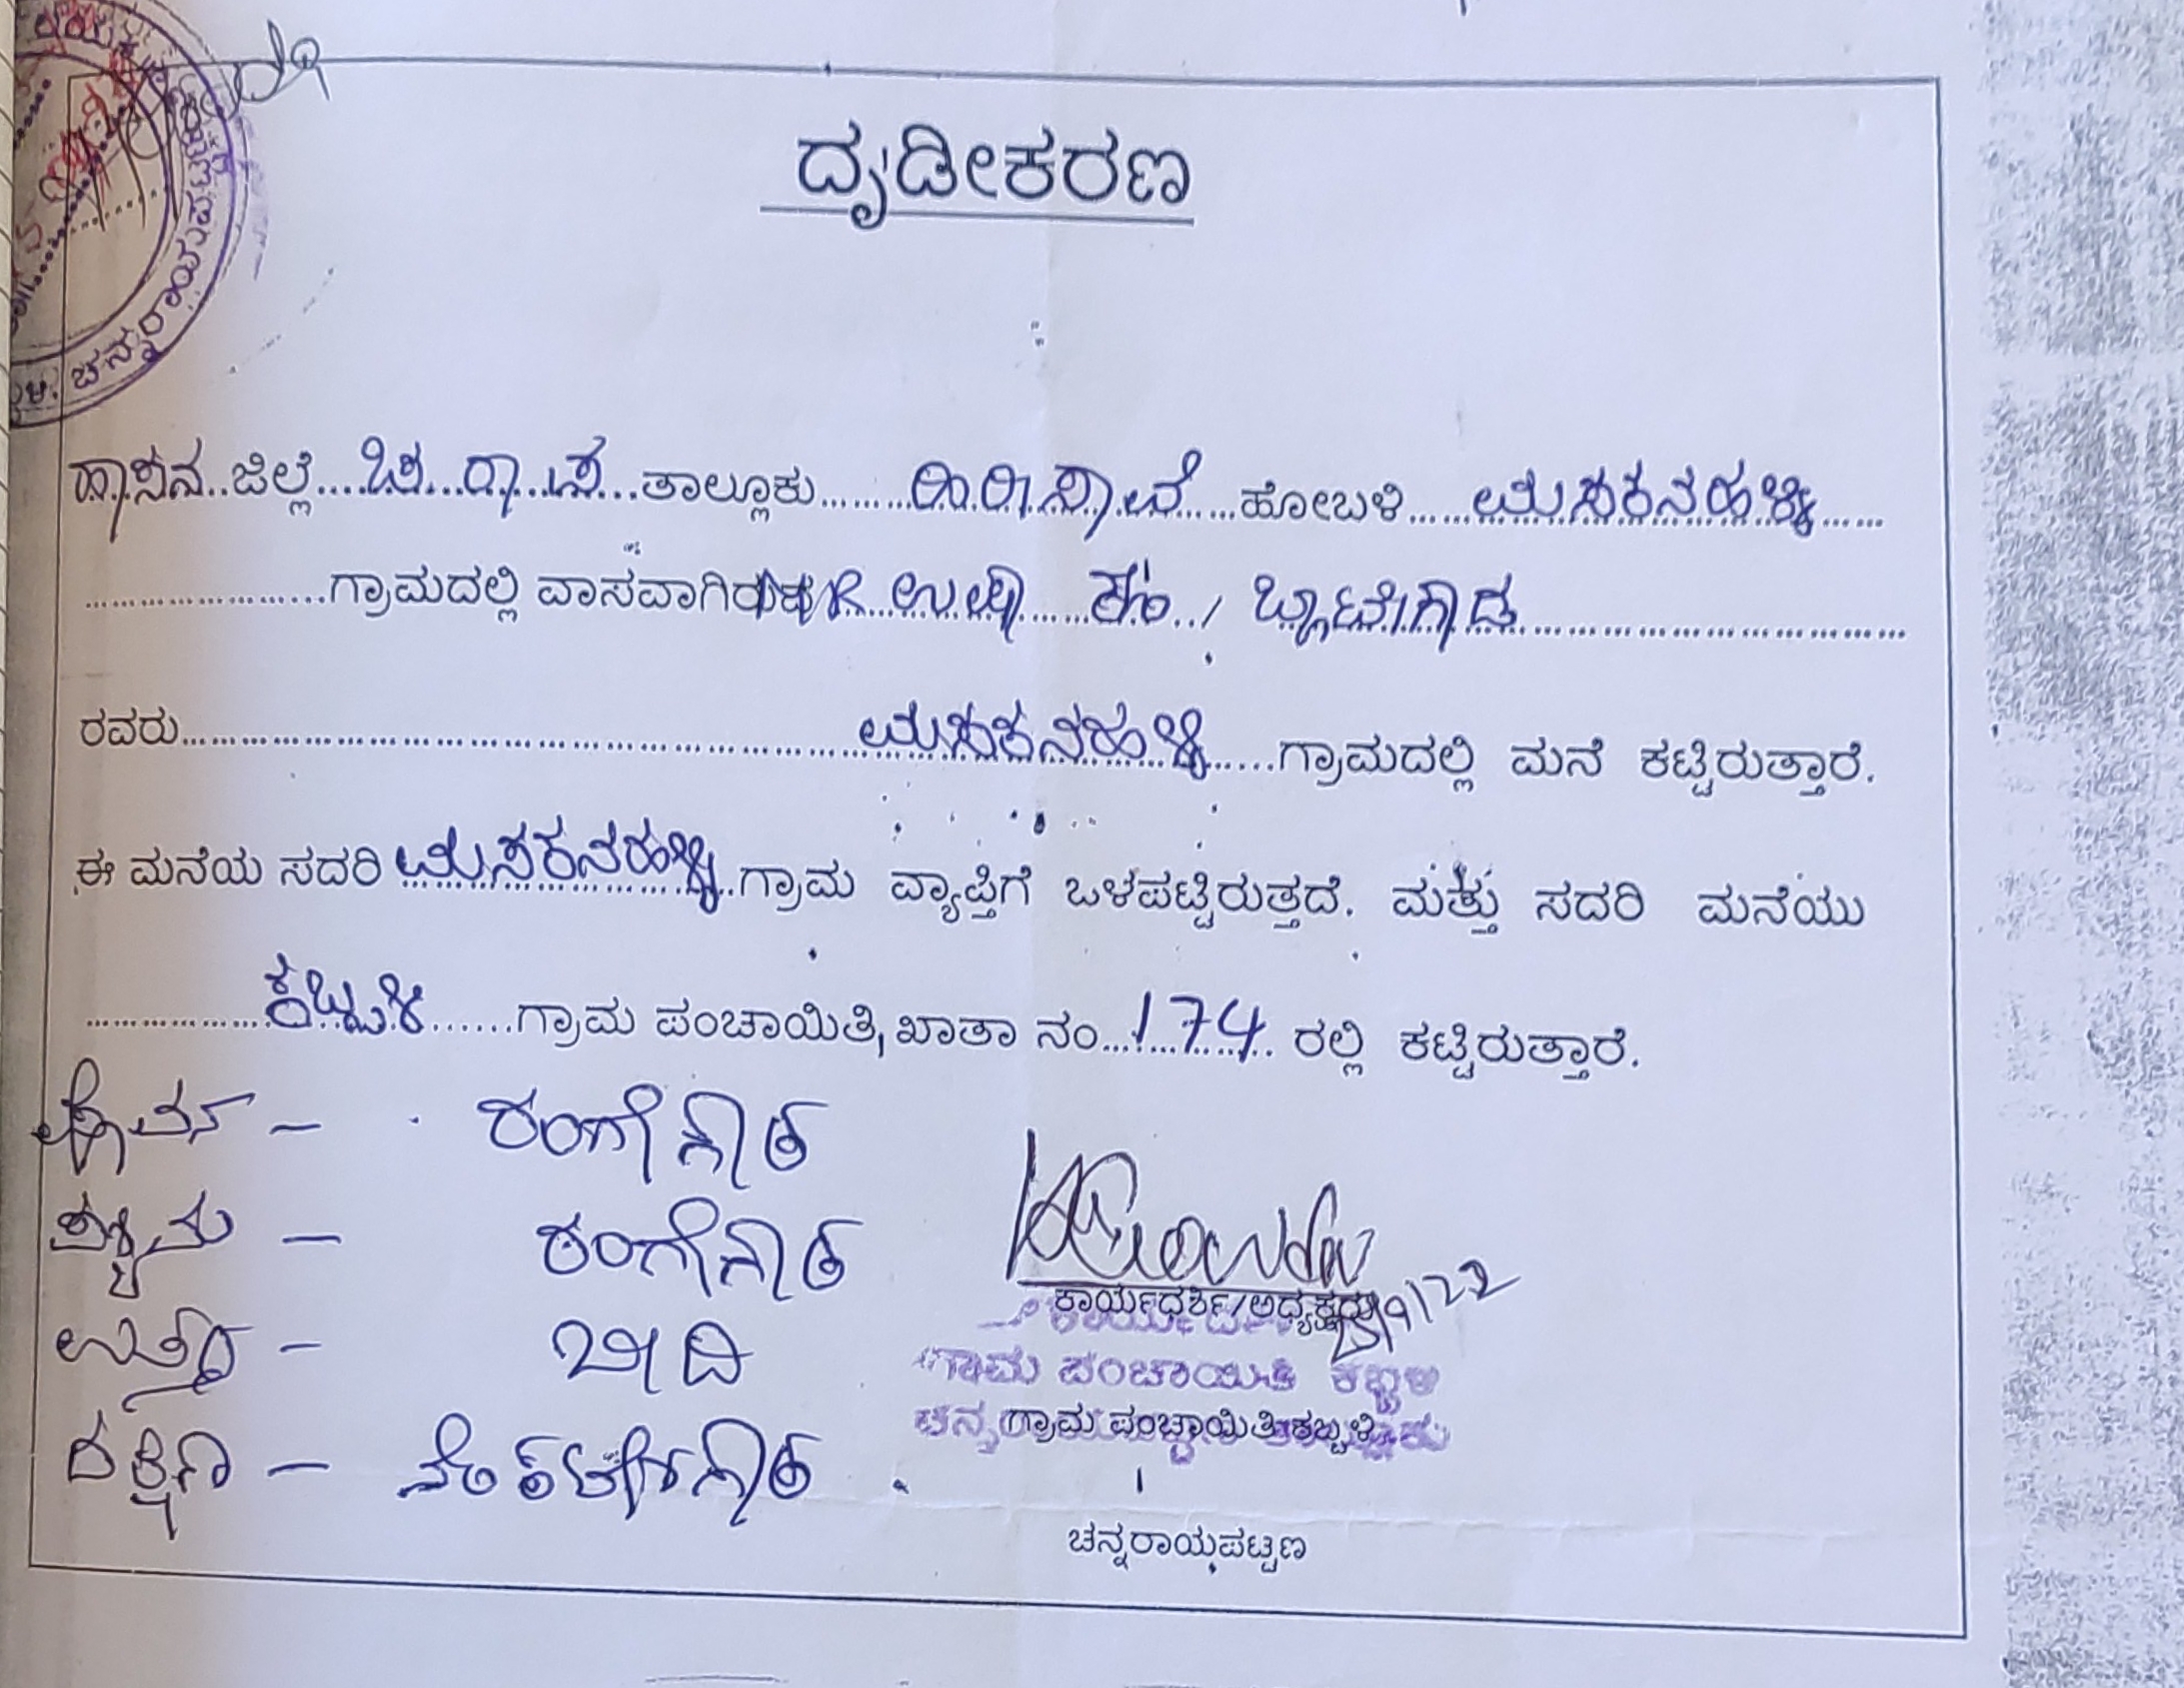 ದೃಡೀಕರಣ
ಹಾಸನ ಜಿಲ್ಲೆ ಚ. ರಾ. ಪ. ತಾಲ್ಲೂಕು ಹಿರೀಸಾವೆ ಹೋಬಳಿ ಮುಸಕನಹಳ್ಳಿ
ಗ್ರಾಮದಲ್ಲಿ ವಾಸವಾಗಿರುವ
ರವರು ಮುಸಕನಹಳ್ಳಿ ಗ್ರಾಮದಲ್ಲಿ ಮನೆ ಕಟ್ಟಿರುತ್ತಾರೆ.
ಈ ಮನೆಯ ಸದರಿ ಮುಸಕನಹಳ್ಳಿ ಗ್ರಾಮ ವ್ಯಾಪ್ತಿಗೆ ಒಳಪಟ್ಟಿರುತ್ತದೆ. ಮತ್ತು ಸದರಿ ಮನೆಯು
ಕಬ್ಬಳಿ ಗ್ರಾಮ ಪಂಚಾಯಿತಿ, ಖಾತಾ ನಂ 174 ರಲ್ಲಿ ಕಟ್ಟಿರುತ್ತಾರೆ.
ರಂಗೇಗೌಡ
ರಂಗೇಗೌಡ
ಉತ್ತರ - ಬೀದಿ
ದಕ್ಷಿಣ - ವೆಂಕಟೇಗೌಡ
ಕಾರ್ಯದರ್ಶಿ/ಅಧ್ಯಕ್ಷರು
ಗ್ರಾಮ ಪಂಚಾಯಿತಿ ಕಬ್ಬಳಿ
ಗ್ರಾಮ ಪಂಚಾಯಿತಿ ಕಬ್ಬಳಿ
ಚನ್ನರಾಯಪಟ್ಟಣ